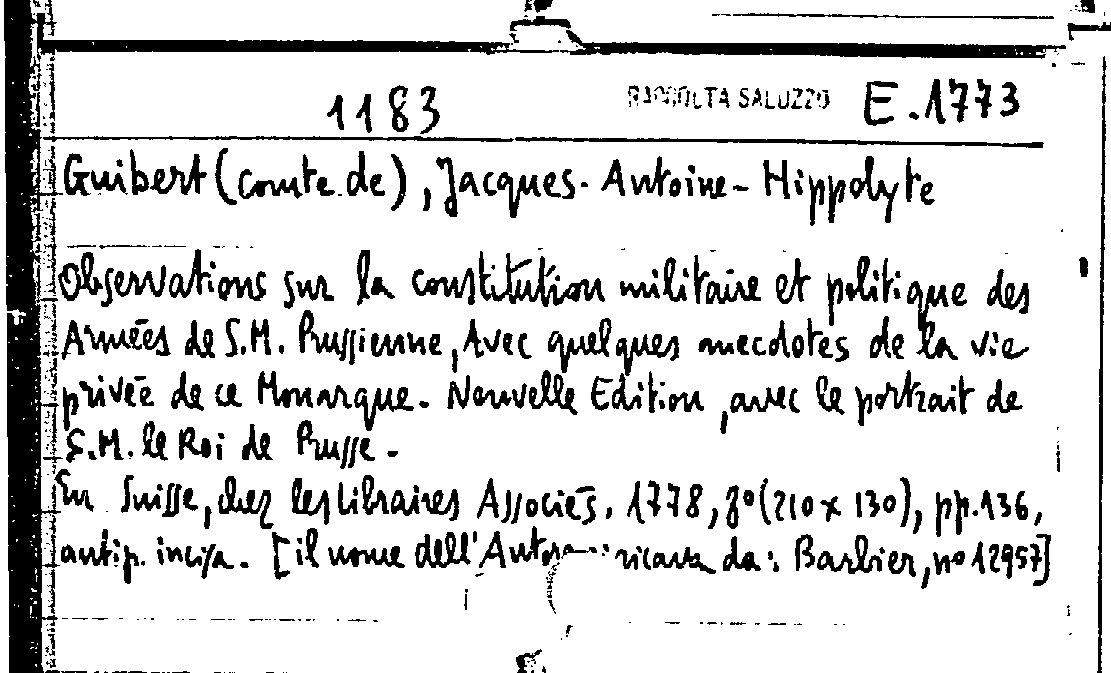 1183 RACCOLTA SALUZZO E.1773
Guibert (comte de), Jacques-Antoine-Hippolyte
Observations sur la constitution militaire et politique des
Armées de S.M. Prussienne, Avec quelques anecdotes de la vie
privée de ce Monarque. Nouvelle Edition, avec le portrait de
S.M. le Roi de Prusse.
En Suisse, chez les Libraires Associés, 1778, 8º (210 x 130), pp. 136,
antip. incisa. [il nome dell'Autore si ricava da: Barbier, nº 12957]